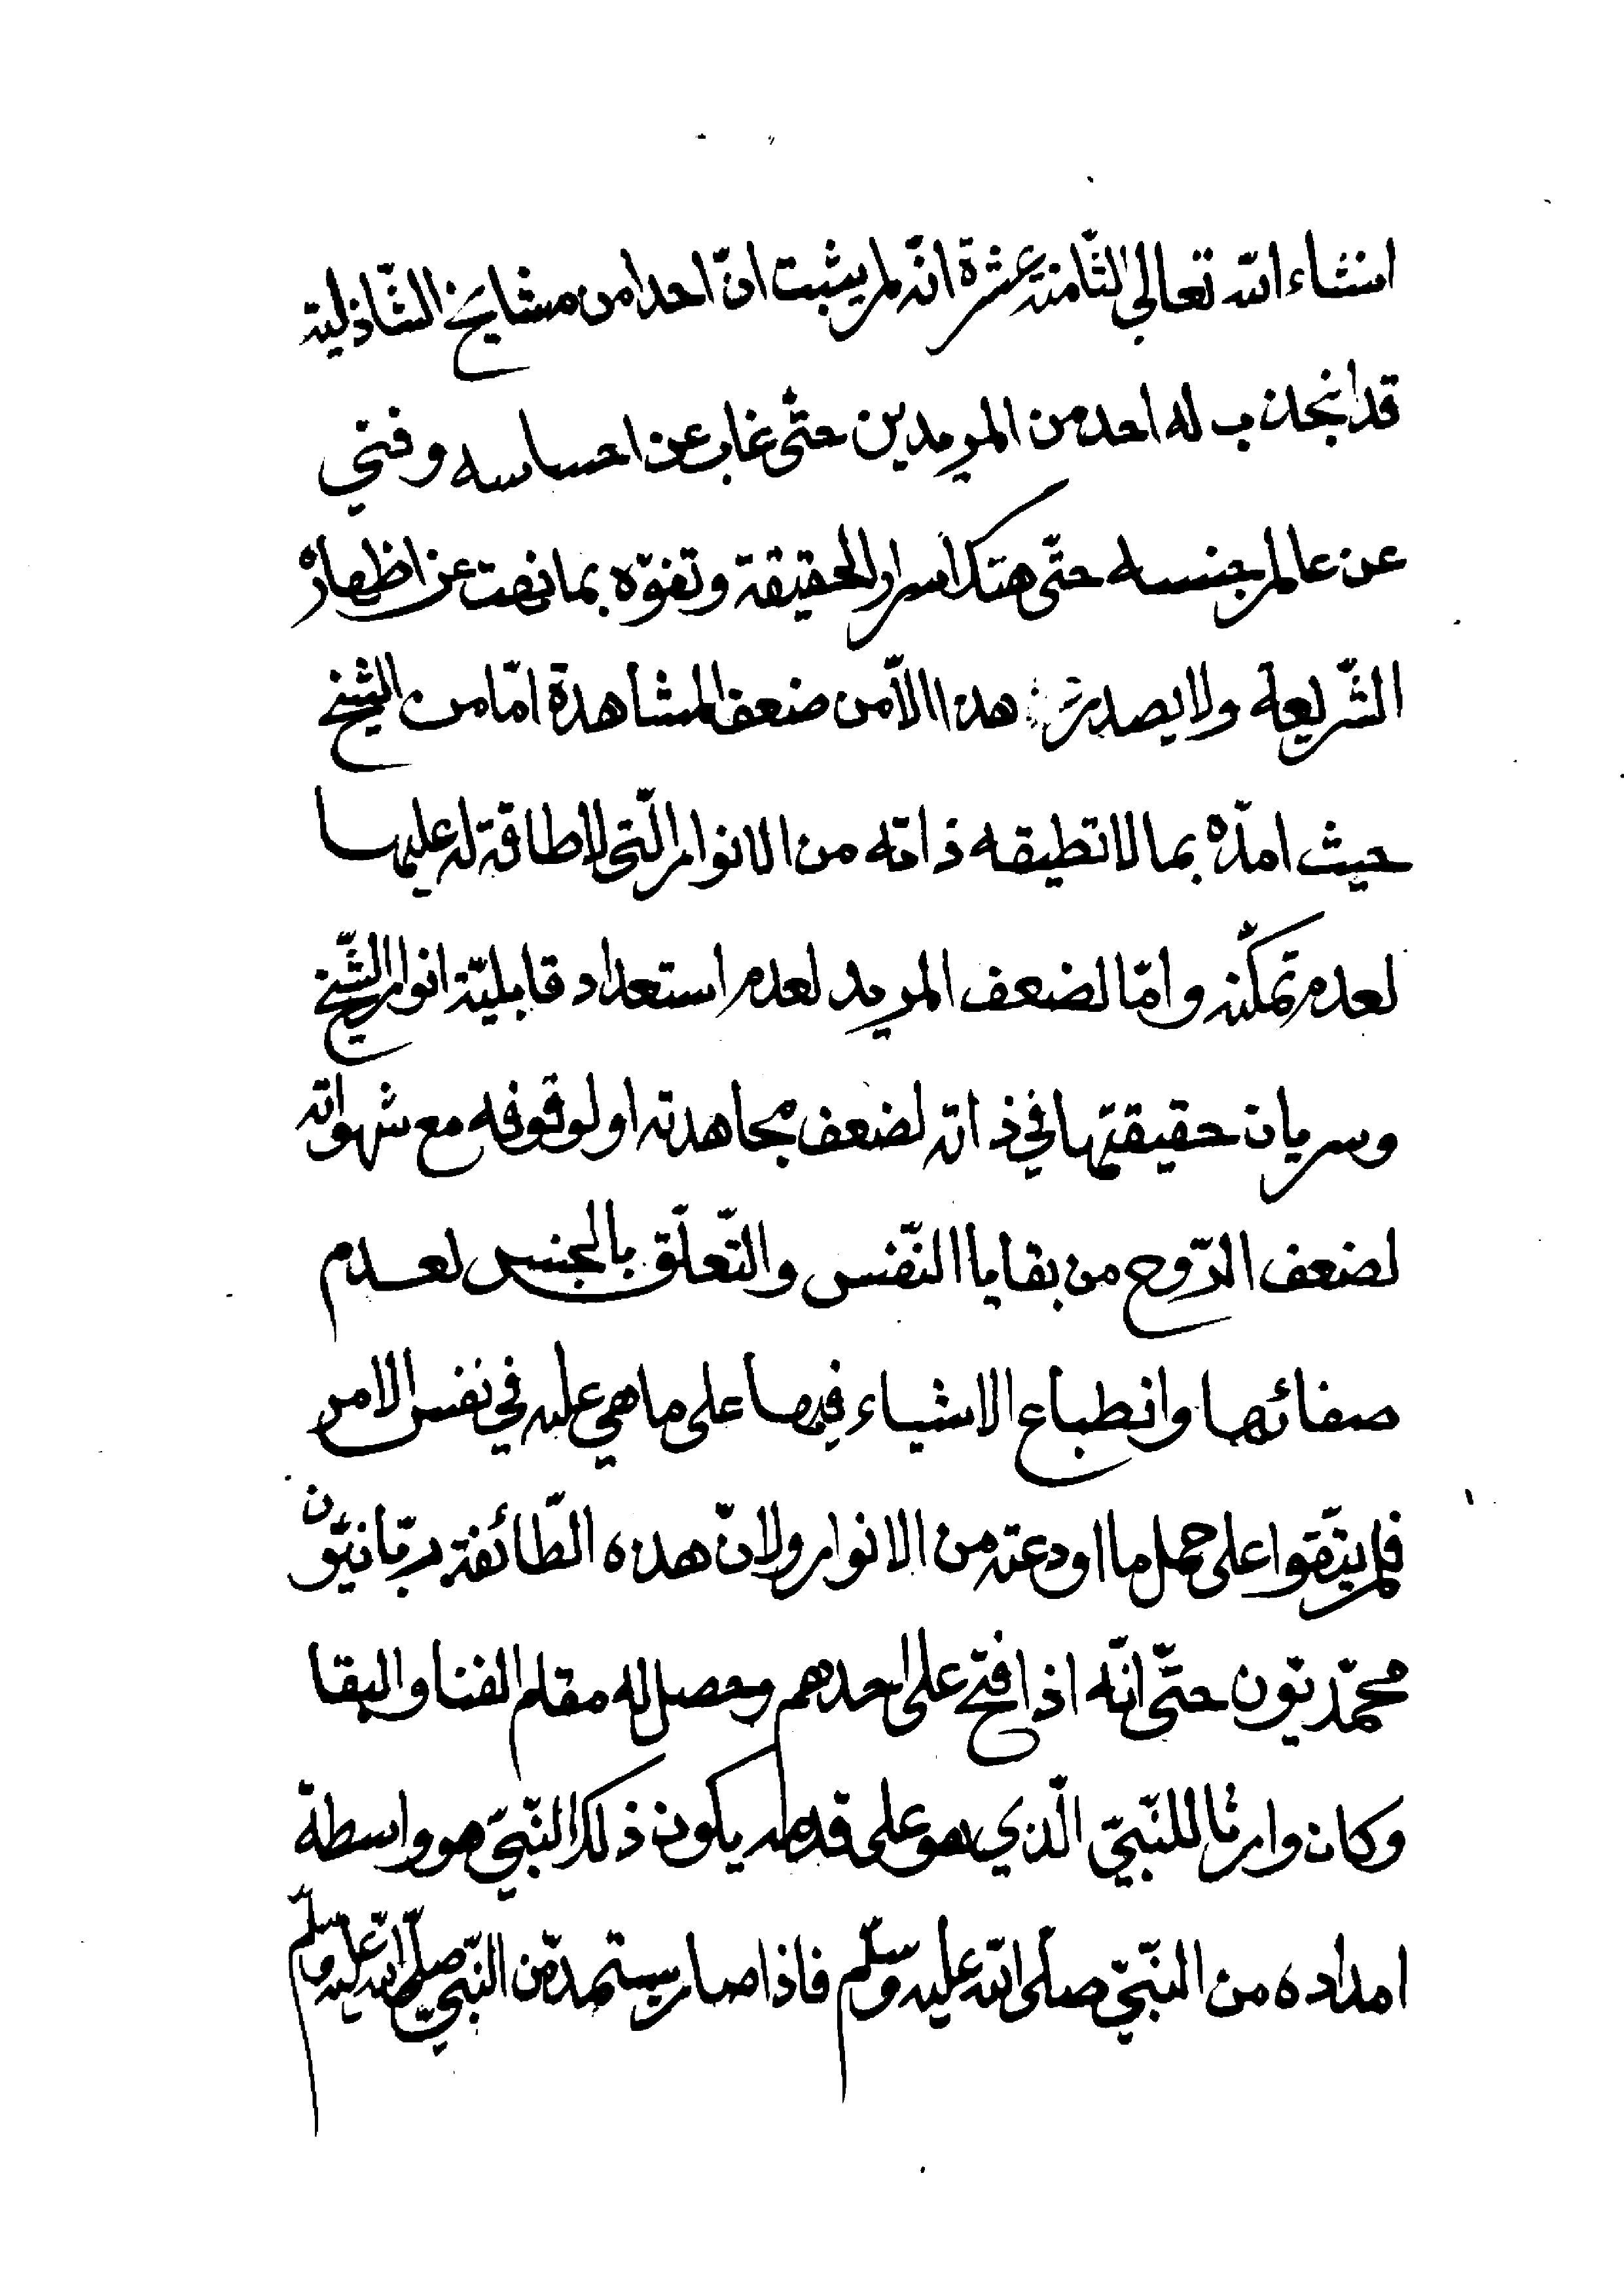 انشاء الله تعالي الثّامنة عشرة انّه لم يثبت انّ احدا من مشايخ الشّاذلية
قد انجذب له احد من المريدين حتّى غاب عن احساسه وفني
عن عالم جنسه حتّى هتك اسرار الحقيقة وتفوّه بما نهت عن اظهاره
الشّريعة ولا يصدر هذا الّا من ضعف المشاهدة امّا من الشيخ
حيث امدّه بما لا تطيقه ذاته من الانوار الّتى لا طاقة له عليها
لعدم تمكّنه وامّا لضعف المريد لعدم استعداد قابليّة انوار الشّيخ
وسريان حقيقتها في ذاته لضعف مجاهدته او لوقوفه مع شهواته
لضعف الرّوح من بقايا النّفس والتّعلّق بالجنس لعدم
صفائها وانطباع الاشياء فيها على ما هي عليه في نفس الامر
فلم يتّقوا على حمل ما اودعته من الانوار ولانّ هذه الطّائفة ربّانيّون
محمّديّون حتّى انّه اذا فتح على احدهم وحصل له مقام الفنا والبقا
وكان وارثا للنّبيّ الّذي هو على قدمه يكون ذلك النّبيّ هو واسطة
امداده من النّبيّ صلّى الله عليه وسلّم فاذا صار يستمدّ من النّبيّ صلّى الله عليه وسلّم